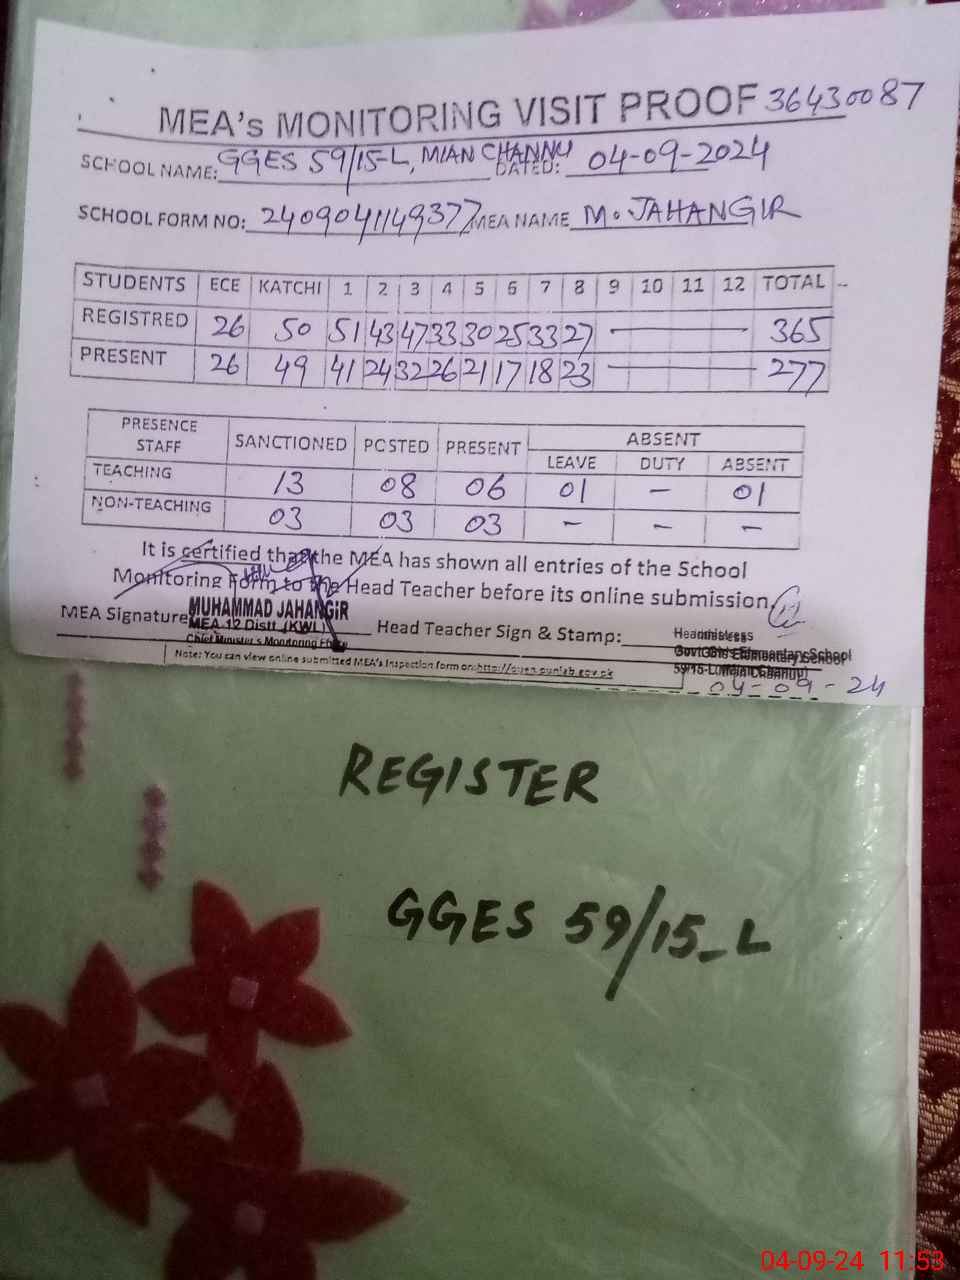 MEA's MONITORING VISIT PROOF 36430087
SCHOOL NAME: GGES 59/15-L, MIAN CHANNU DATED: 04-09-2024
SCHOOL FORM NO: 2409041149377 MEA NAME M. JAHANGIR
STUDENTS ECE KATCHI 1 2 3 4 5 6 7 8 9 10 11 12 TOTAL
REGISTRED 26 50 51 43 47 33 30 25 33 27 — 365
PRESENT 26 49 41 24 32 26 21 17 18 23 — 277
PRESENCE STAFF SANCTIONED POSTED PRESENT ABSENT
LEAVE DUTY ABSENT
TEACHING 13 08 06 01 – 01
NON-TEACHING 03 03 03 – – –
It is certified that the MEA has shown all entries of the School
Monitoring Form to the Head Teacher before its online submission
MEA Signature MUHAMMAD JAHANGIR
MEA 12 Distt (KWL)
Chief Minister's Monitoring Force
Head Teacher Sign & Stamp:
Headmistress
Govt Girls Elementary School
59/15-L (Mian Channu)
Note: You can view online submitted MEA's Inspection form on: http://open.punjab.gov.pk
04-09-24
REGISTER
GGES 59/15_L
04-09-24 11:53